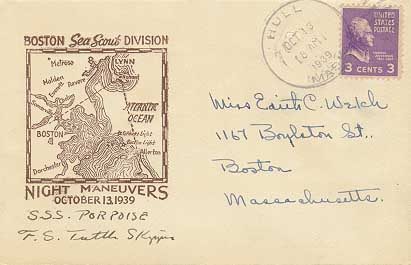 BOSTON Sea Scout DIVISION
Melrose
LYNN
Malden
Revere
Everett
Somerville
ATLANTIC
OCEAN
BOSTON
Graves Light
Boston Light
Allerton
Dorchester
NIGHT MANEUVERS
OCTOBER 13, 1939
S.S.S. PORPOISE
F. S. Tuttle Skipper
HULL
OCT 13
10 AM
1939
MASS.
UNITED STATES POSTAGE
3 CENTS 3
Miss Edith C. Welch
1167 Boylston St.,
Boston
Massachusetts.